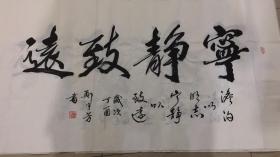 寧靜致遠
澹泊
以
明志
寧靜
以
致遠
歲次
丁酉
書